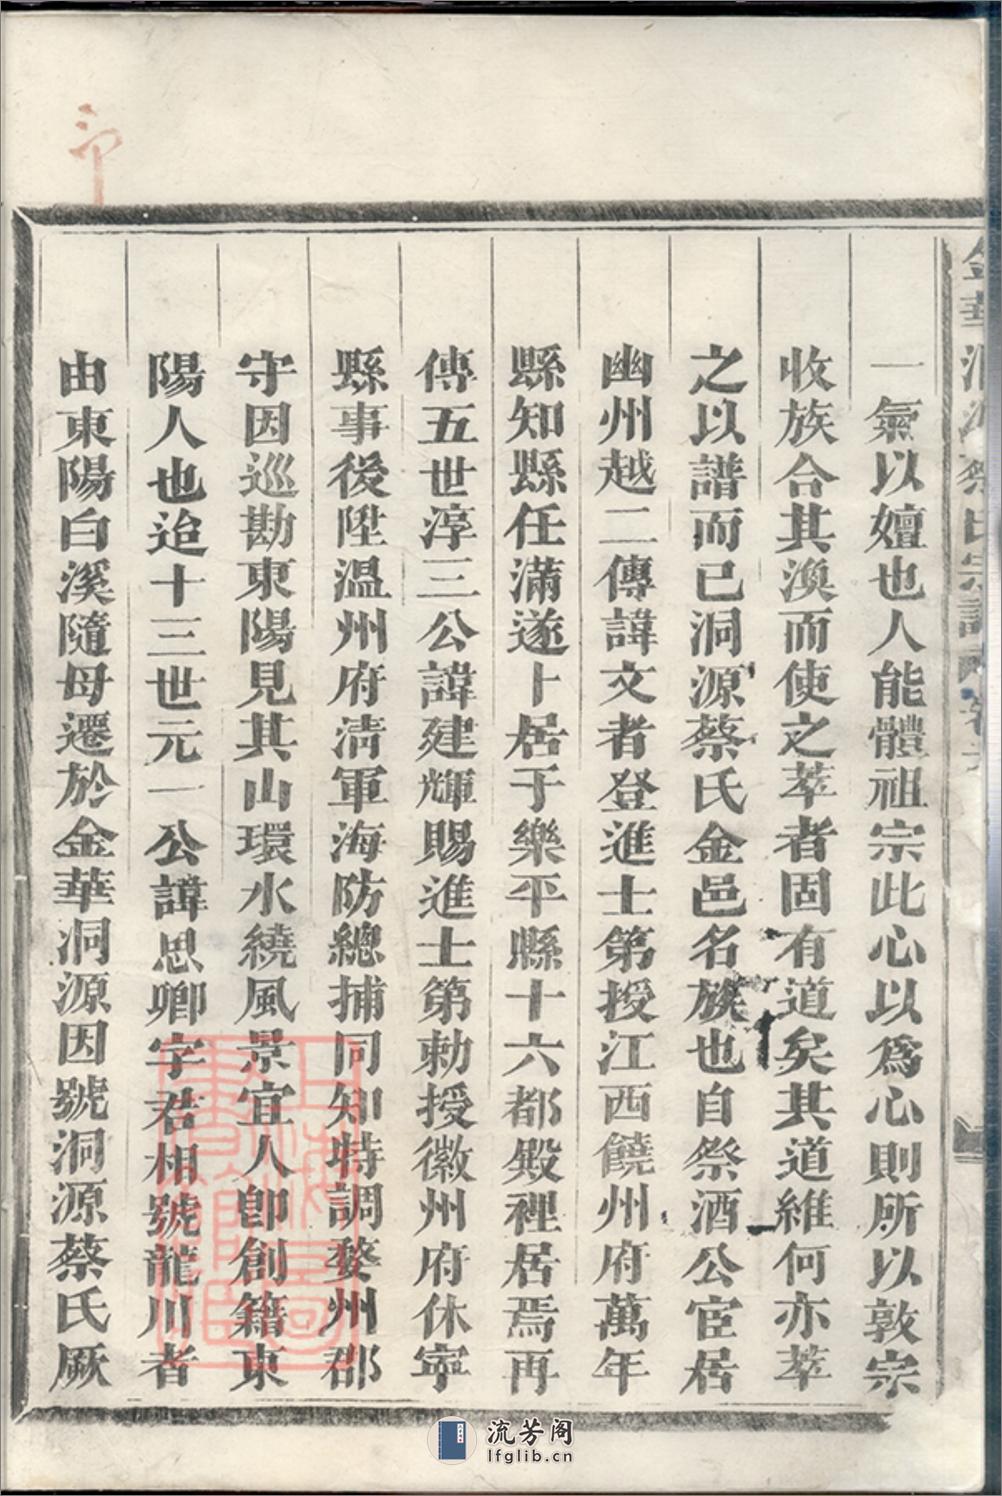 金華洞源蔡氏宗譜
一氣以嬗也人能體祖宗此心以爲心則所以敦宗
收族合其渙而使之萃者固有道矣其道維何亦萃
之以譜而已洞源蔡氏金邑名族也自祭酒公宦居
幽州越二傳諱文者登進士第授江西饒州府萬年
縣知縣任滿遂卜居于樂平縣十六都殿裡居焉再
傳五世淳三公諱建輝賜進士第勅授徽州府休寧
縣事後陞溫州府清軍海防總捕同知特調婺州郡
守因巡勘東陽見其山環水繞風景宜人卽創籍東
陽人也迨十三世元一公諱思卿字君相號龍川者
由東陽白溪隨母遷於金華洞源因號洞源蔡氏厥
上海圖書館藏
流芳阁
lfglib.cn